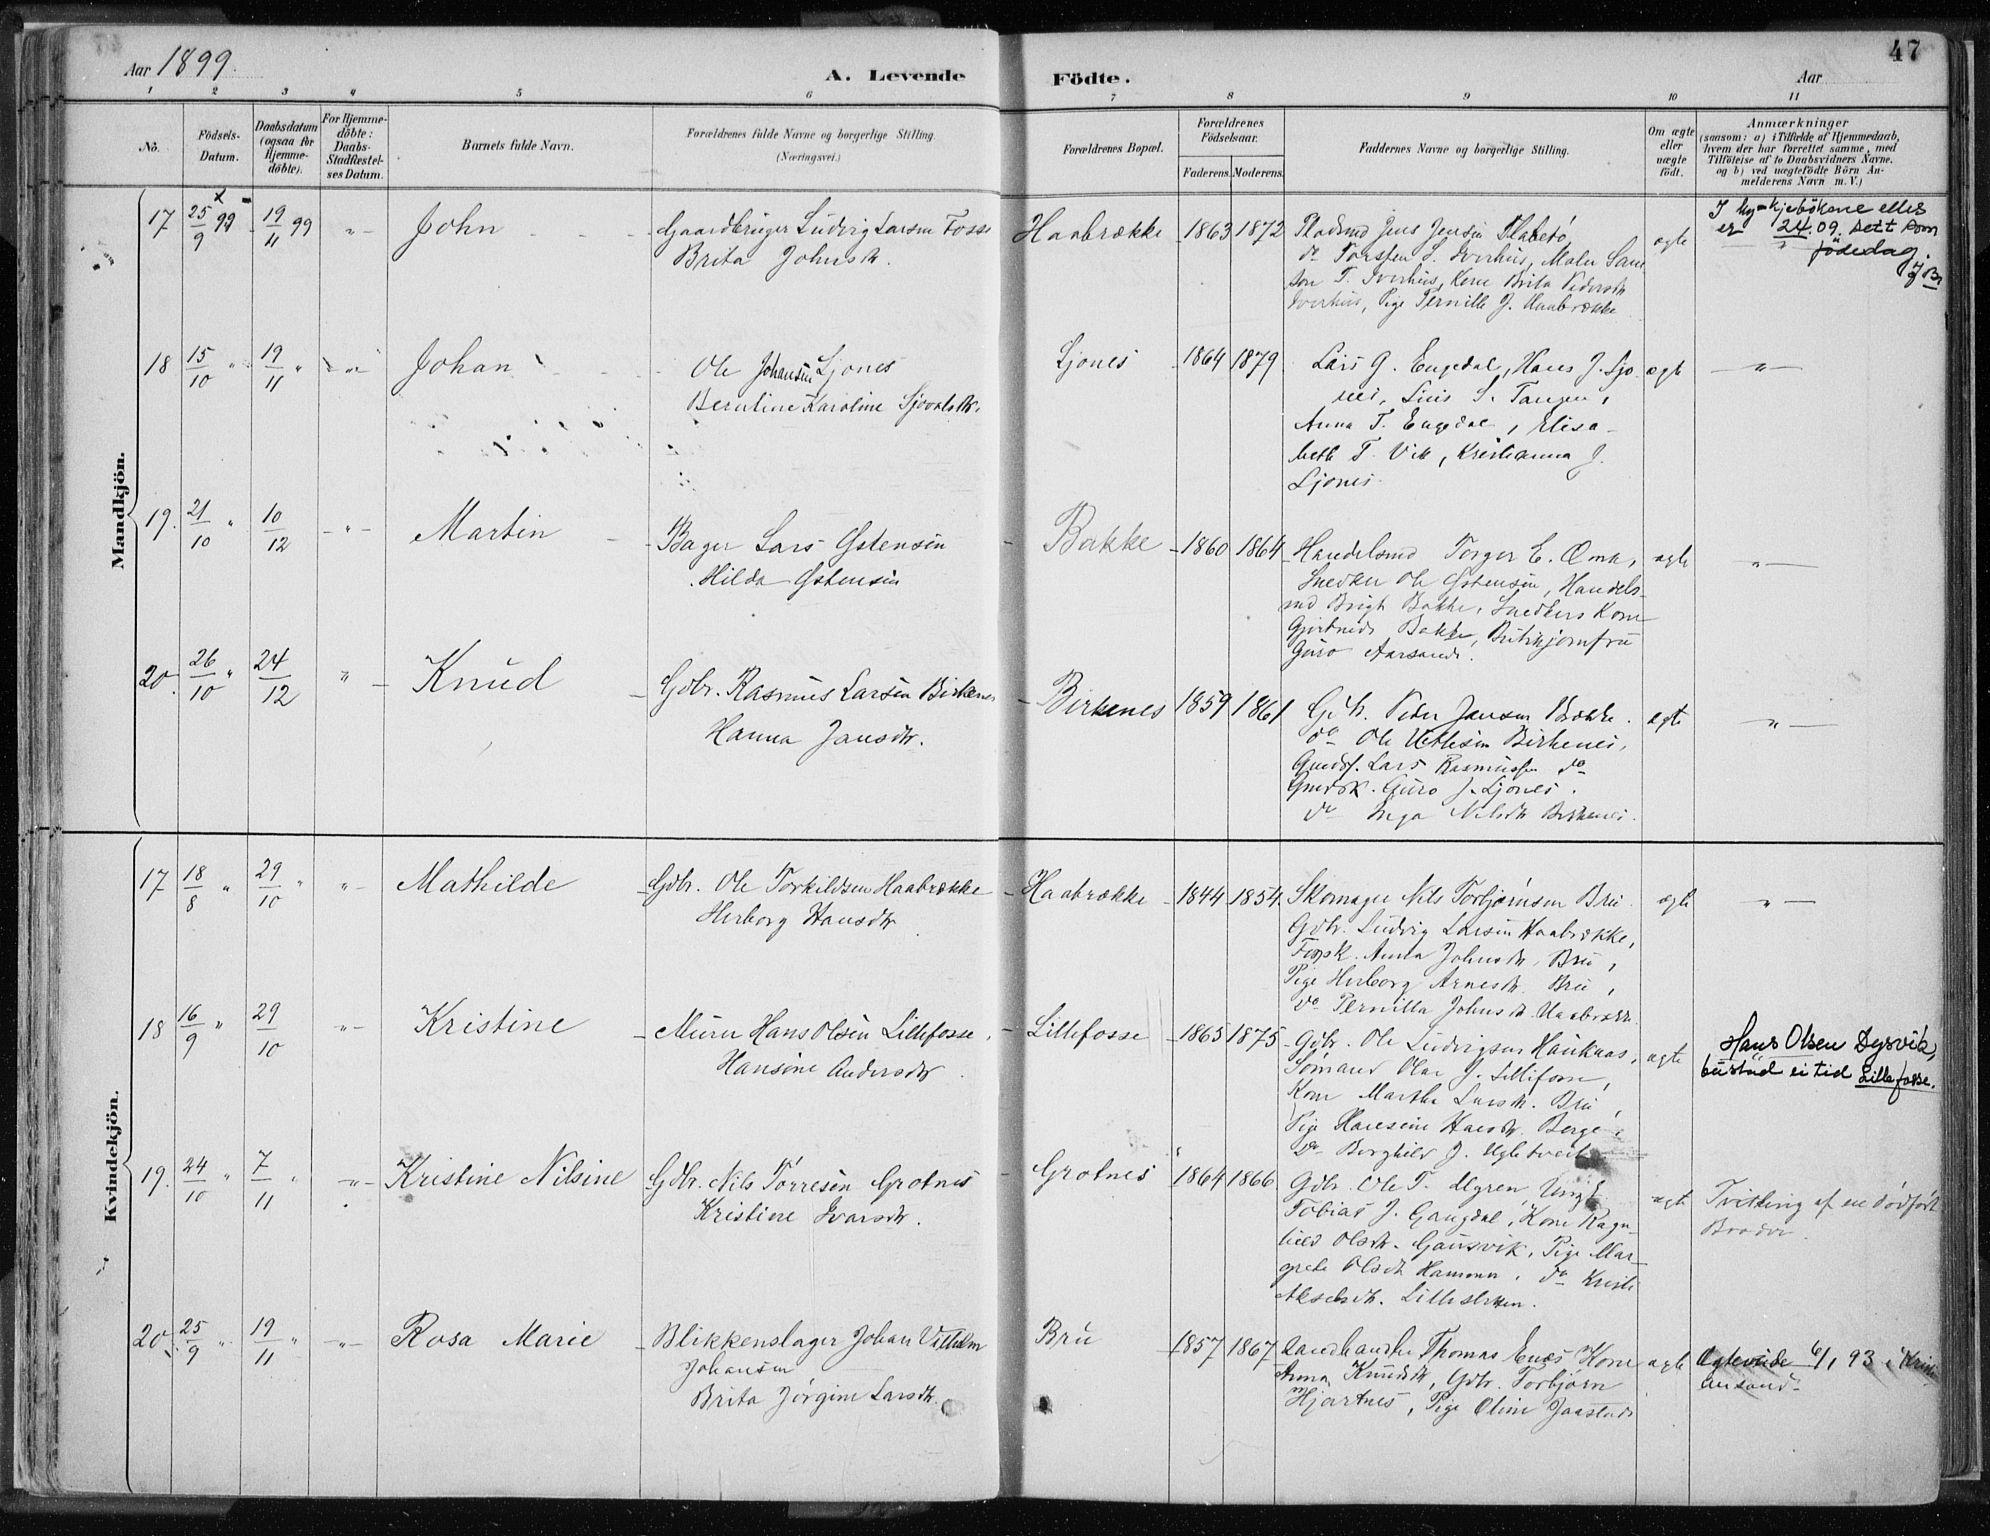 Aar 1899.
A. Levende Födte.
47
Aar
1 2 3 4 5 6 7 8 9 10 11
No.
Födsels-
Datum.
Daabsdatum
(ogsaa for
Hjemme-
døbte).
For Hjemme-
döbte:
Daabs-
Stadfæstel-
ses Datum.
Barnets fulde Navn.
Forældrenes fulde Navne og borgerlige Stilling.
(Næringsvei.)
Forældrenes Bopæl.
Forældrenes
Födselsaar.
Faderens. Moderens.
Faddernes Navne og borgerlige Stilling.
Om ægte
eller
uægte
født.
Anmærkninger
(saasom: a) i Tilfælde af Hjemmedaab,
hvem der har forrettet samme, med
Tilföielse af to Daabsvidners Navne.
og b) ved uægtefödte Börn An-
melderens Navn m. V.)
Mandkjön.
17 25/9 99 19/11 99 " John Gaardbruger Ludvig Larsen Fosse
Brita Johnsdtr.
Haabrække 1863 1872 Pladsmd Jens Jensen
do Torsten S. Tverhus,
T. Tverhus, Kone Brita Pedersdtr
Tverhus, Pige Pernille J. Haabrække
ægte
er 24.09. sett som
fødedag.
18 15/10 " 19/11 " " Johan Ole Johansen Ljones
Berntine Karoline Sjovatsdtr.
Ljones 1864 1879 Lars G. Engedal, Hans J. Ljo-
nes, S. Tangen,
Anna T. Engedal, Elisa-
beth T. Vik, Kristianna J.
Ljones
ægte "
19. 21/10 " 10/12 " Martin Bager Lars Østensen
Hilda Østensen
Bakke 1860 1864 Handelsmd Torger E.
Snedker Ole Østensen, Handels-
md Brigt Bakke, Snedkers Kone
Bakke,
Guro Aarsand.
ægte "
20. 26/10 " 24/12 " Knud Gdbr. Rasmus Larsen Birkenes
Hanna Jansdtr.
Birkenes 1859 1861 Gdbr. Peder Jansen Brække.
do Ole Birkenes,
Lars Rasmussen do
Guro J. Ljones.
do Inga Nilsdtr Birkenes.
ægte "
Kvindekjön.
17 18/8 " 29/10 " " Mathilde Gdbr. Ole Torkildsen Haabrække
Herborg Hansdtr
Haabrække 1844 1854. Skomager Nils Torbjørnsen Bru.
Gdbr. Ludvig Larsen Haabrække,
Anna Johnsdtr Bru,
Pige Herborg Arnesdtr. Bru,
do Pernilla Johnsdtr. Haabrække
ægte "
18 16/9 " 29/10 " Kristine Murer Hans Olsen Lillefosse.
Hansine Andersdtr.
Lillefosse 1865 1875 Gdbr. Ole Ludvigsen Haukaas,
Sømand Olai J. Lillefosse,
Kone Martha Larsdtr. Bru,
Pige Hansine Hansdtr. Berge,
do Borghild J. Ugletveit
ægte
Hans Olsen Dysvik,
bustad ei tid Lillefosse.
19. 24/10 " 7/11 " " Kristine Nilsine Gdbr. Nils Torresen Grotnes
Kristine Ivarsdtr.
Grotnes 1864 1866 Gdbr. Ole T. Ungk
Tobias J. Gangdal, Kone Ragn-
hild Olsdtr. Gausvik, Pige Mar-
grete Olsdtr Hammer, do Kristi
Akselsdtr. Lillesletten.
ægte
Tvilling af en dødfødt
Broder.
20. 25/9 " 19/11 " " Rosa Marie Blikkenslager Johan Vilhelm
Johansen
Brita Jørgine Larsdtr.
Bru 1857 1867 Landhandler Thomas Enes Kone
Anna Knudsdtr, Gdbr. Torbjørn
Hjartnes, Pige Oline Jaastad
ægte
Ægteviede 6/1 93 i Kristi-
ansand